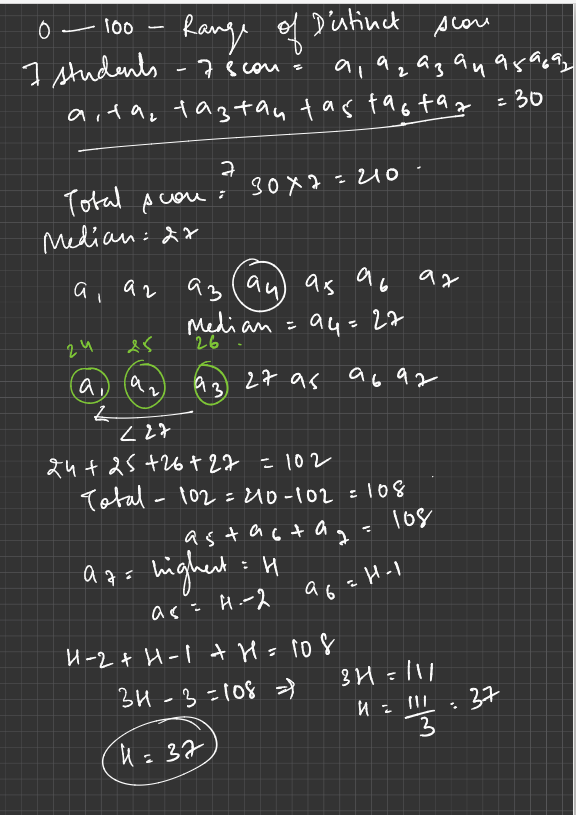 0 — 100 — Range of Distinct score
7 students - 7 score = a1 a2 a3 a4 a5 a6 a7
a1 + a2 + a3 + a4 + a5 + a6 + a7 = 30
7
Total score = 30 x 7 = 210
Median = 27
a1 a2 a3 a4 a5 a6 a7
Median = a4 = 27
24 25 26
a1 a2 a3 27 a5 a6 a7
< 27
24 + 25 + 26 + 27 = 102
Total - 102 = 210 - 102 = 108
a5 + a6 + a7 = 108
a7 = highest = H
a5 = H-2 a6 = H-1
H-2 + H-1 + H = 108
3H - 3 = 108 ⇒ 3H = 111
H = 111/3 = 37
H = 37